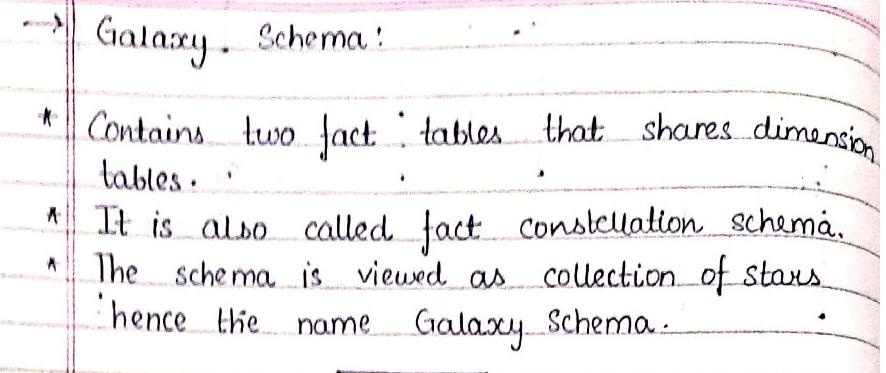 → Galaxy. Schema:
* Contains two fact tables that shares dimension
tables.
* It is also called fact constellation schema.
* The schema is viewed as collection of stars
hence the name Galaxy Schema.